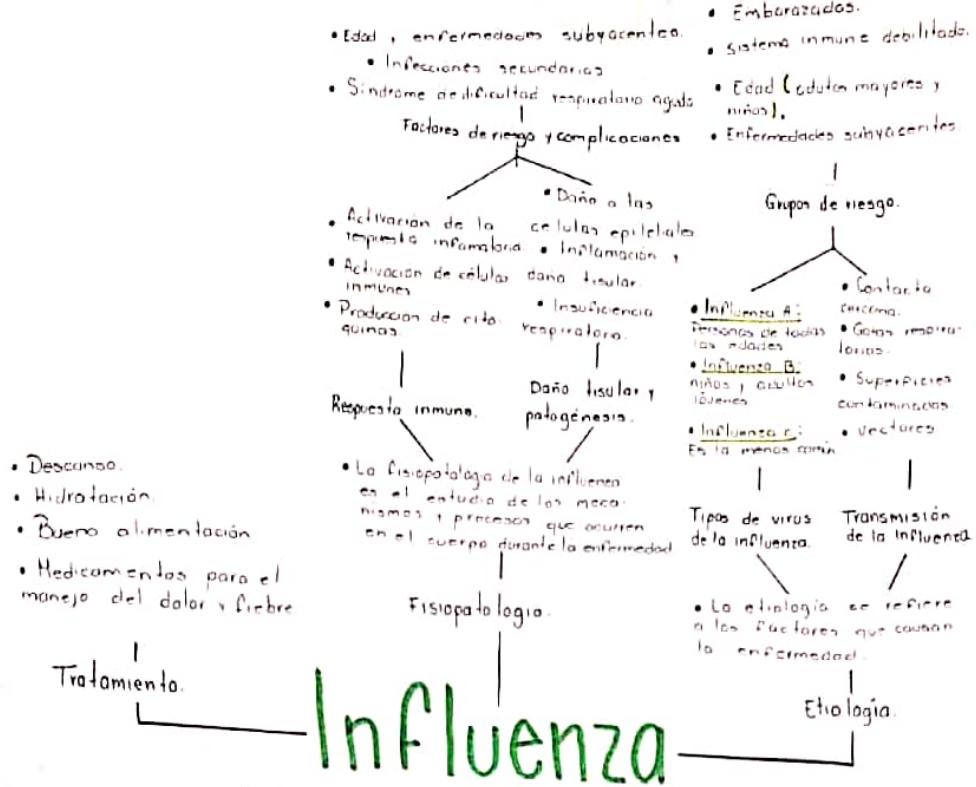 • Edad, enfermedades subyacentes.
• Infecciones secundarias
• Síndrome de dificultad respiratorio agudo
Factores de riesgo y complicaciones
• Activación de la
respuesta infamatoria.
• Activación de células
inmunes
• Produccion de cito-
quinas.
Respuesta inmune.
• Daño a las
celulas epiteliales
• Inflamación y
daño tisular.
• Insuficiencia
respiratora.
Daño tisular y
patogénesis.
• La fisiopatología de la influenza
es el estudio de los meca-
nismos y procesos que ocurren
en el cuerpo durante la enfermedad
Fisiopatologia.
• Embarazadas.
• Sistema inmune debilitado.
• Edad (adultos mayores y
niños).
• Enfermedades subyacentes.
Grupos de riesgo.
• Influenza A:
Personas de todas
las edades
• Influenza B:
niños y adultos
jóvenes
• Influenza C:
Es la menos común
Tipos de virus
de la influenza.
• Contacto
cercano.
• Gotas respira-
torias.
• Superficies
contaminadas.
• Vectores
Transmisión
de la influenza
• La etiología se refiere
a los factores que causan
la enfermedad.
Etiologia.
• Descanso.
• Hidratación.
• Buena alimentación
• Medicamentos para el
manejo del dolor y fiebre
Tratamiento.
Influenza